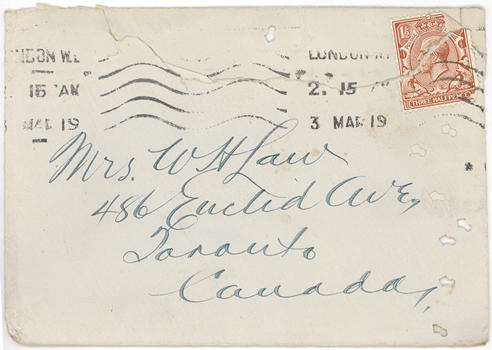 LONDON W.
1½
15 AM
2. 15
MAR 19
3 MAR 19
THREE HALFPENCE
Mrs. W H Law
486 Euclid Ave,
Toronto
Canada,